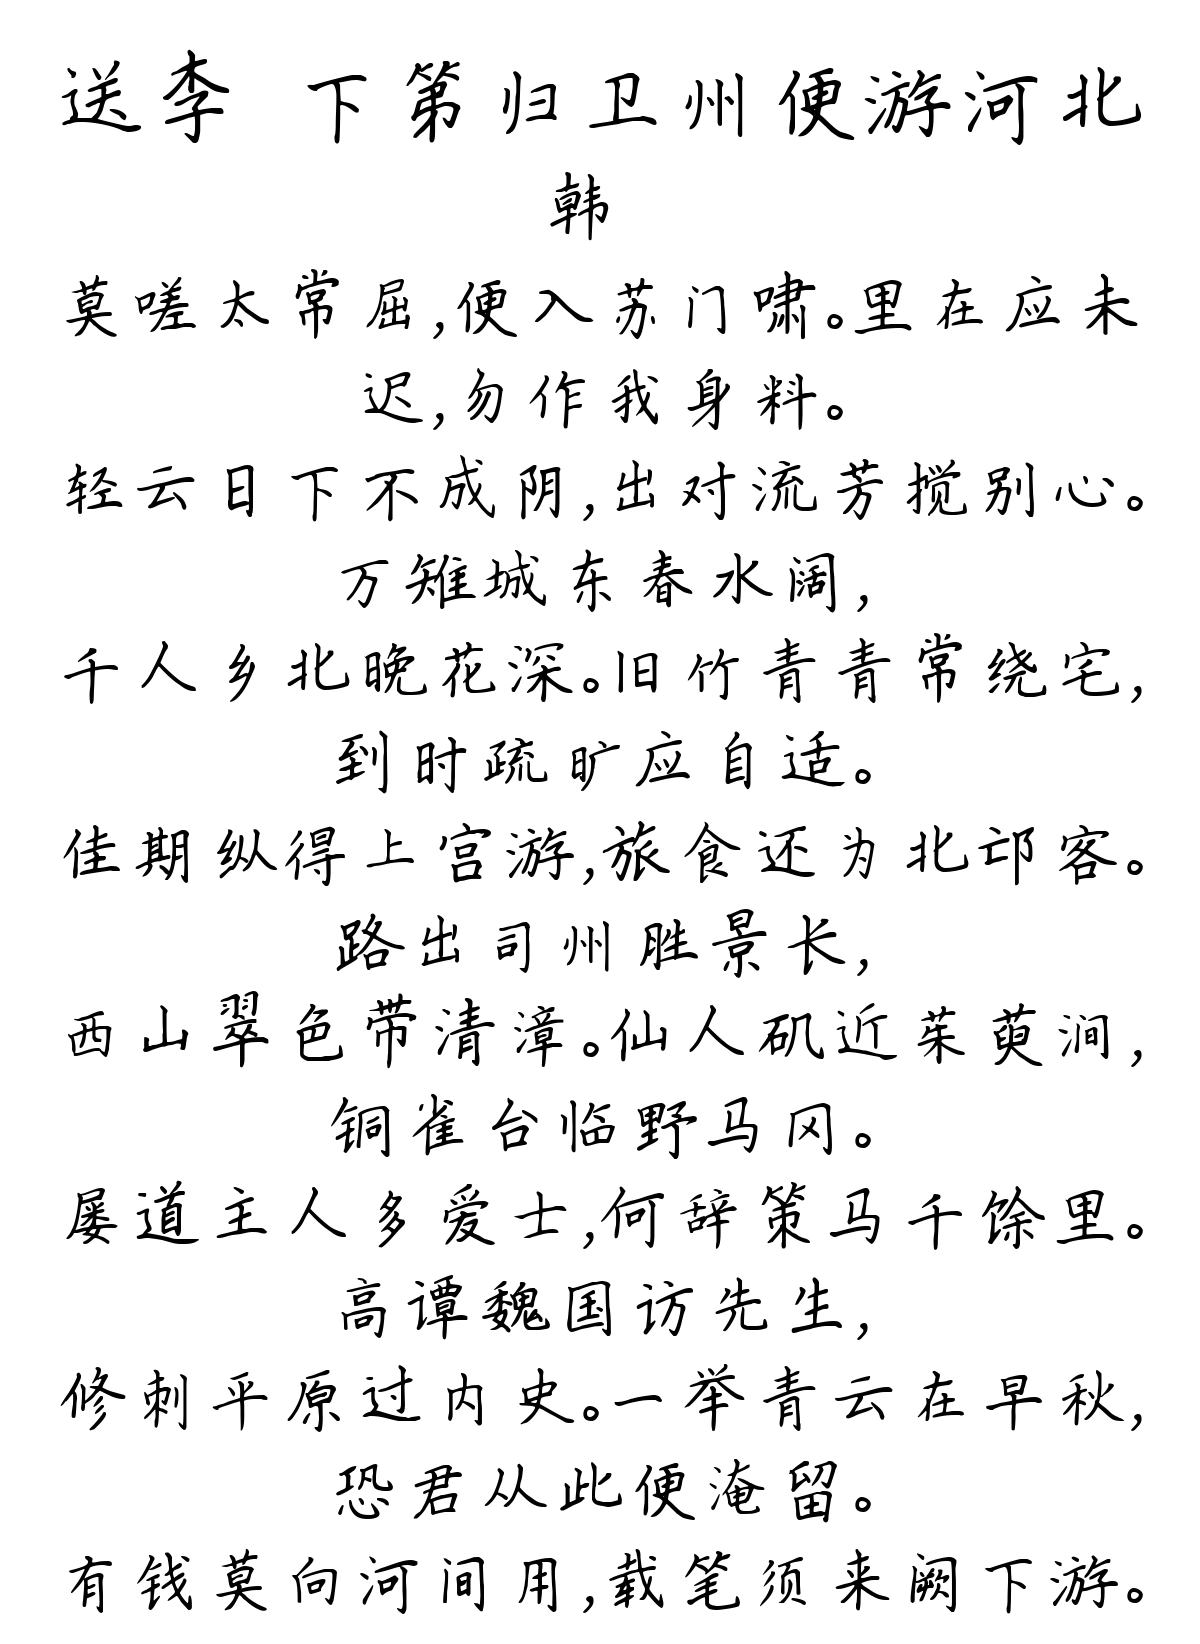 送李 下第归卫州便游河北
韩
莫嗟太常屈,便入苏门啸。里在应未
迟,勿作我身料。
轻云日下不成阴,出对流芳搅别心。
万雉城东春水阔,
千人乡北晚花深。旧竹青青常绕宅,
到时疏旷应自适。
佳期纵得上宫游,旅食还为北邙客。
路出司州胜景长,
西山翠色带清漳。仙人矶近茱萸涧,
铜雀台临野马冈。
屡道主人多爱士,何辞策马千馀里。
高谭魏国访先生,
修刺平原过内史。一举青云在早秋,
恐君从此便淹留。
有钱莫向河间用,载笔须来阙下游。